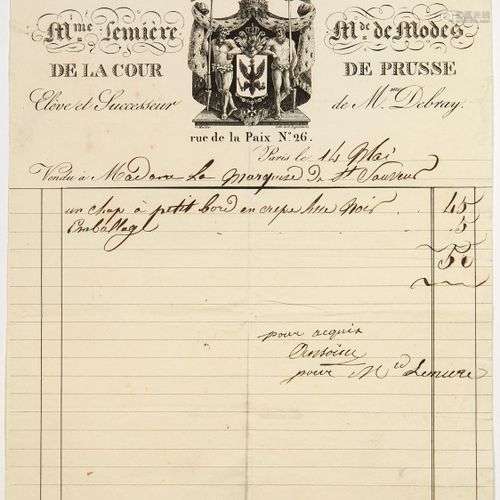 Mme Lemière Mde de Modes
DE LA COUR DE PRUSSE
Elève et Successeur de Mme Debray.
rue de la Paix No. 26.
Paris le 14 Mai
Vendu à Madame La Marquise de St Sauveur
un chap à petit bord en crepe lisse Noir 45
Emballage 5
50
pour acquis
pour Md Lemiere